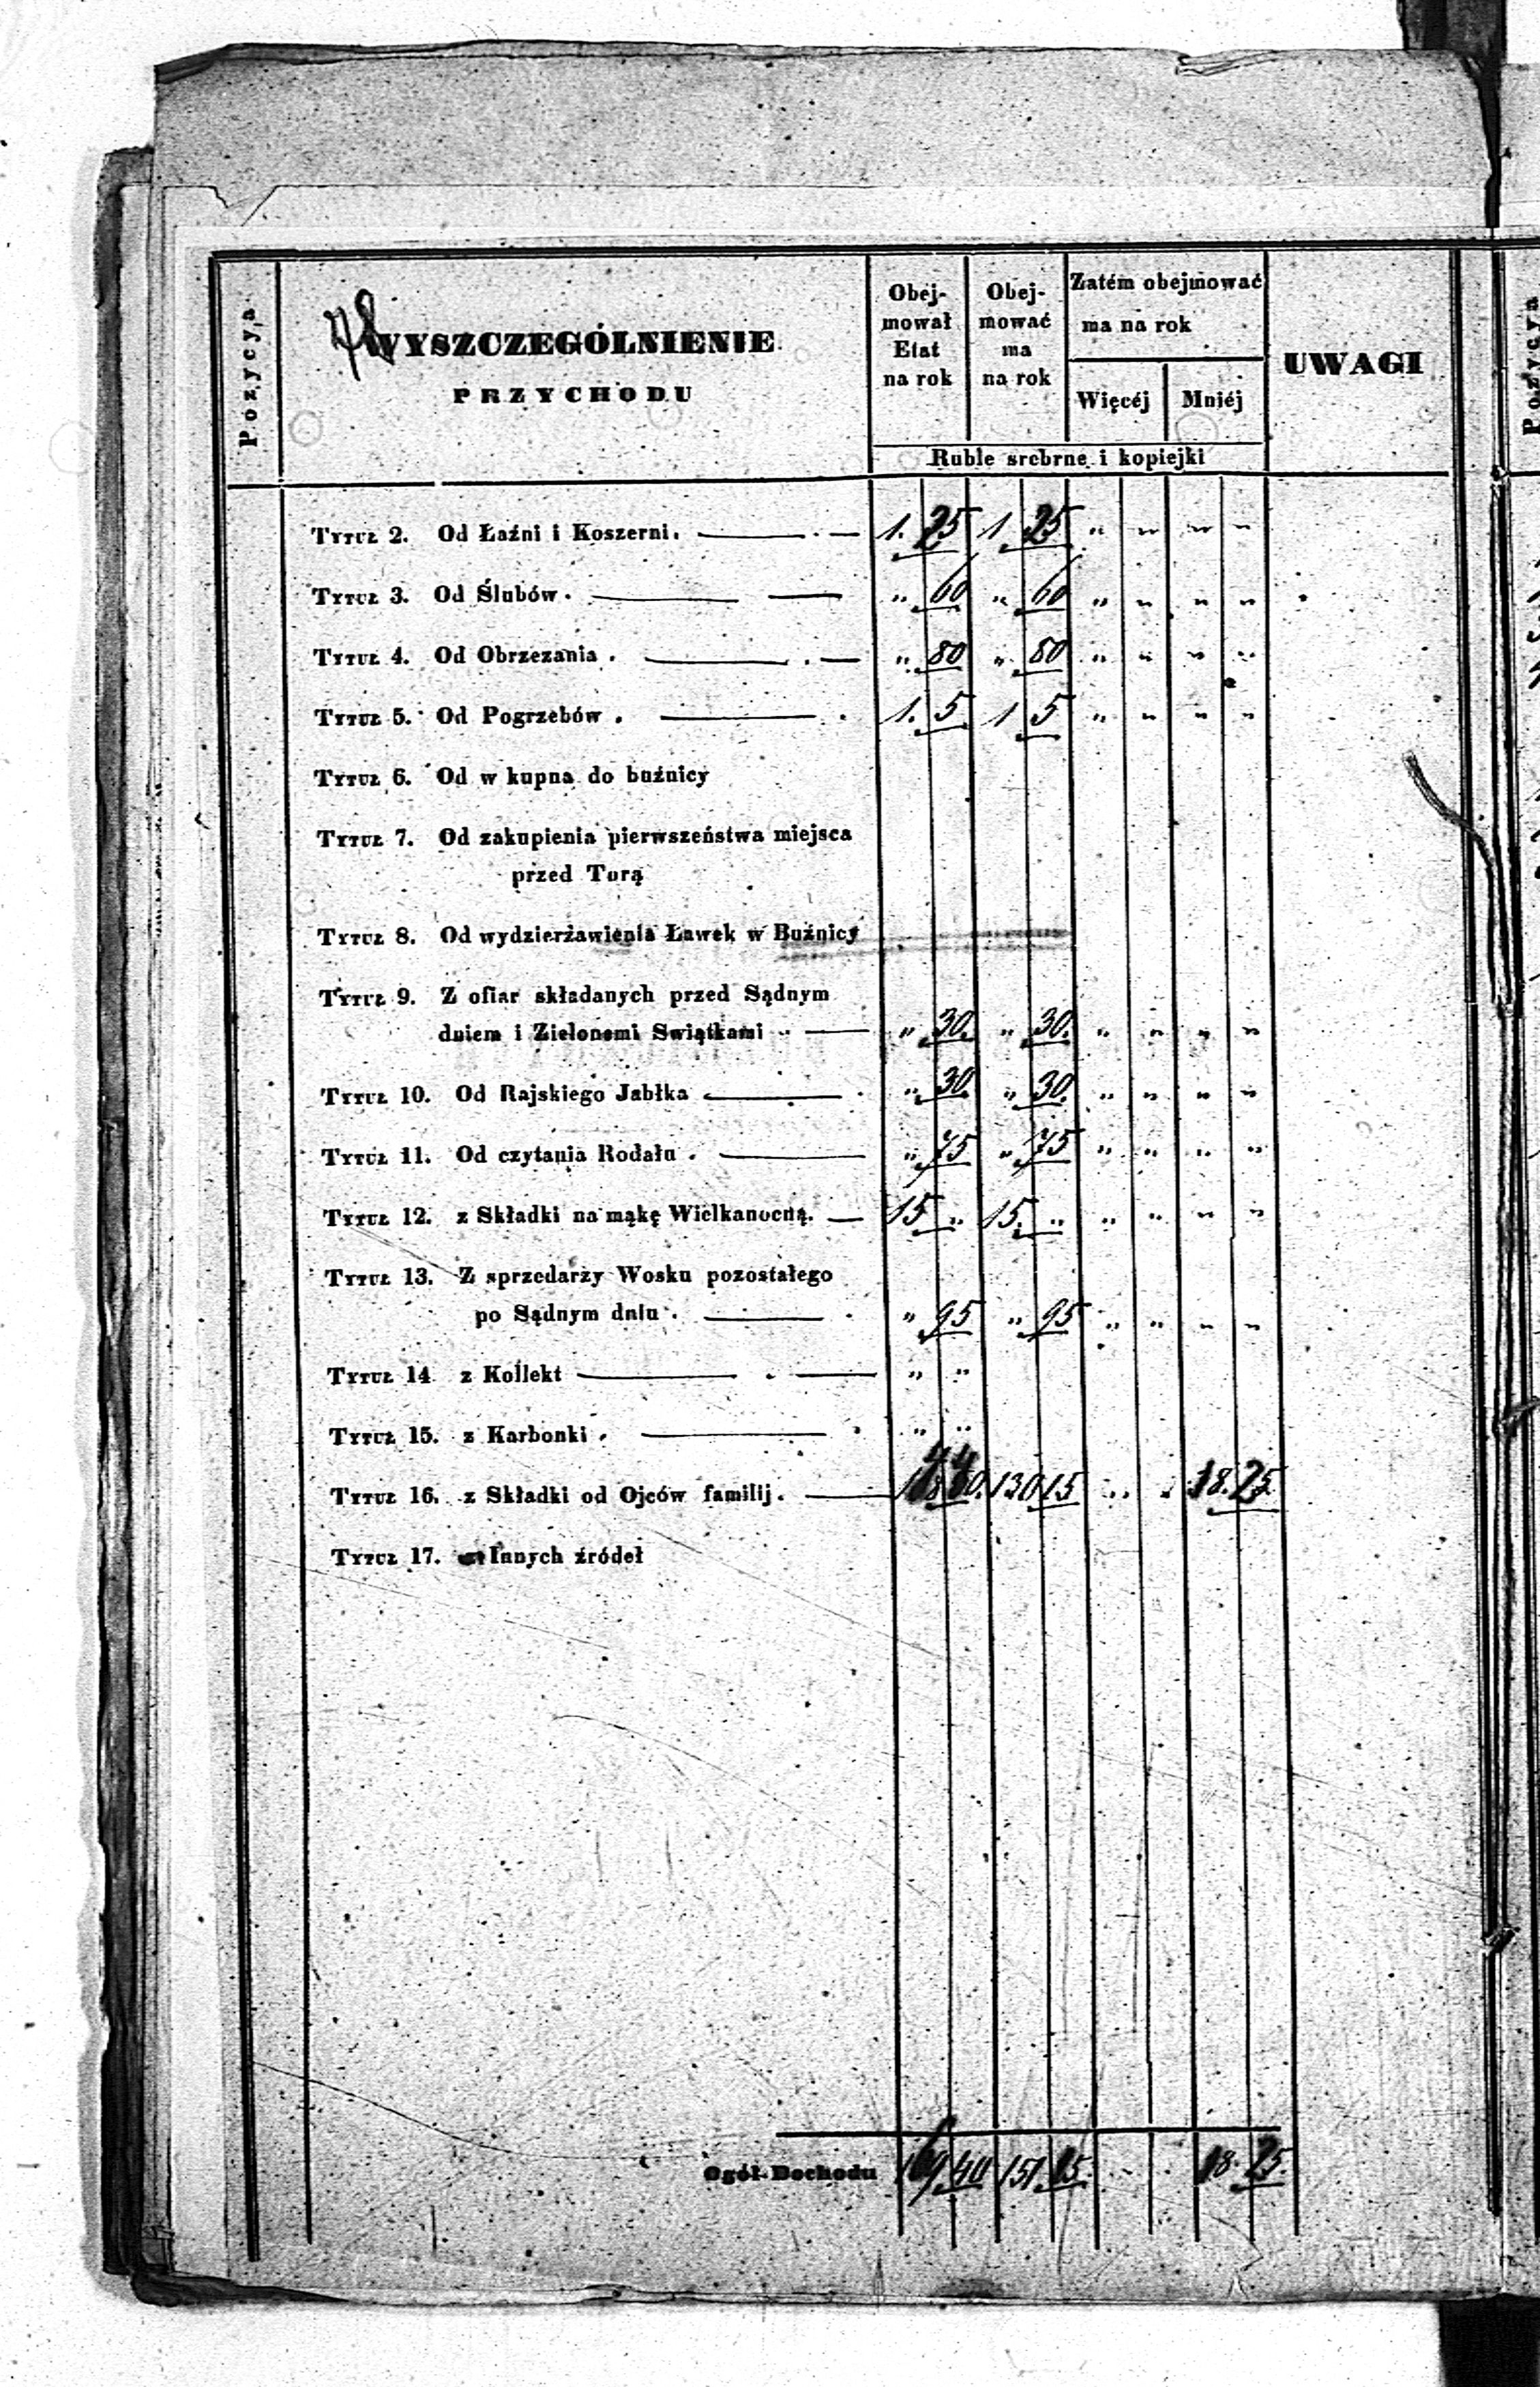 78
Pozycya
WYSZCZEGÓLNIENIE
PRZYCHODU
Obej-
mował
Etat
na rok
Obej-
mować
ma
na rok
Zatém obejmować
ma na rok
Więcéj Mniéj
UWAGI
Ruble srebrne i kopiejki
Tytuł 2. Od Łaźni i Koszerni. 1. 25 1 25 " " " "
Tytuł 3. Od Ślubów. " 60 " 60 " " " "
Tytuł 4. Od Obrzezania. " 80 " 80 " " " "
Tytuł 5. Od Pogrzebów. 1. 5. 1 5 " " " "
Tytuł 6. Od w kupna do buźnicy
Tytuł 7. Od zakupienia pierwszeństwa miejsca
przed Torą
Tytuł 8. Od wydzierżawienia Ławek w Buźnicy
Tytuł 9. Z ofiar składanych przed Sądnym
dniem i Zielonemi Swiątkami " 30. " 30. " " " "
Tytuł 10. Od Rajskiego Jabłka " 30. " 30. " " " "
Tytuł 11. Od czytania Rodału. " 75 " 75 " " " "
Tytuł 12. z Składki na mąkę Wielkanocną. 15 " 15. " " " " "
Tytuł 13. Z sprzedarzy Wosku pozostałego
po Sądnym dniu. " 95 " 95 " " " "
Tytuł 14 z Kollekt " "
Tytuł 15. z Karbonki. " "
Tytuł 16. z Składki od Ojców familij. 130 15 " " 18. 25.
Tytuł 17. Innych źródeł
Ogół Dochodu 169 40 151 15. " " 18. 25.
Pozycya